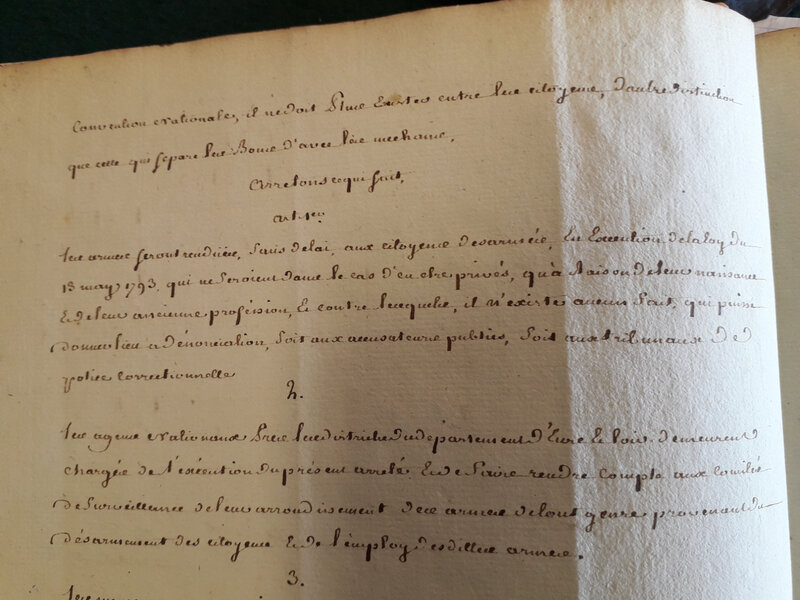 Convention nationale, il ne doit plus exister entre les citoyens, d'autre distinction
que celle qui separe les Bons d'avec les mechans,
Arretons ce qui suit,
art. 1er
Les armes seront rendues, sans delai, aux citoyens desarmés, En Execution de la loy du
13 may 1793, qui ne seroient dans le cas d'en etre privés, qu'à Raison de leur naissance
& de leur ancienne proféssion, & contre lesquels, il n'existe aucun fait, qui puisse
donner lieu a dénonciation, soit aux accusateurs publics, soit aux tribunaux de
police correctionnelle
2.
Les agens nationaux Près les districts du département d'Eure & loir demeurent
chargés de l'exécution du présent arrêté & de faire rendre compte aux comités
de surveillance de leur arrondissement des armes de tout genre, provenant du
désarmement des citoyens & de l'employ des dittes armes.
3.